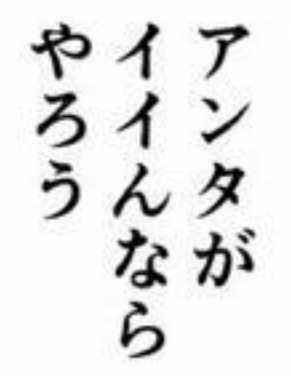 アンタが
イイんなら
やろう